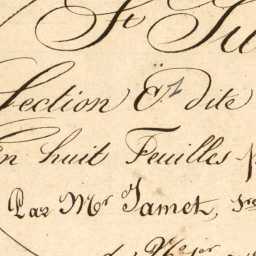 St Ju
Section E1 dite
En huit Feuilles p
Par Mr Jamet,